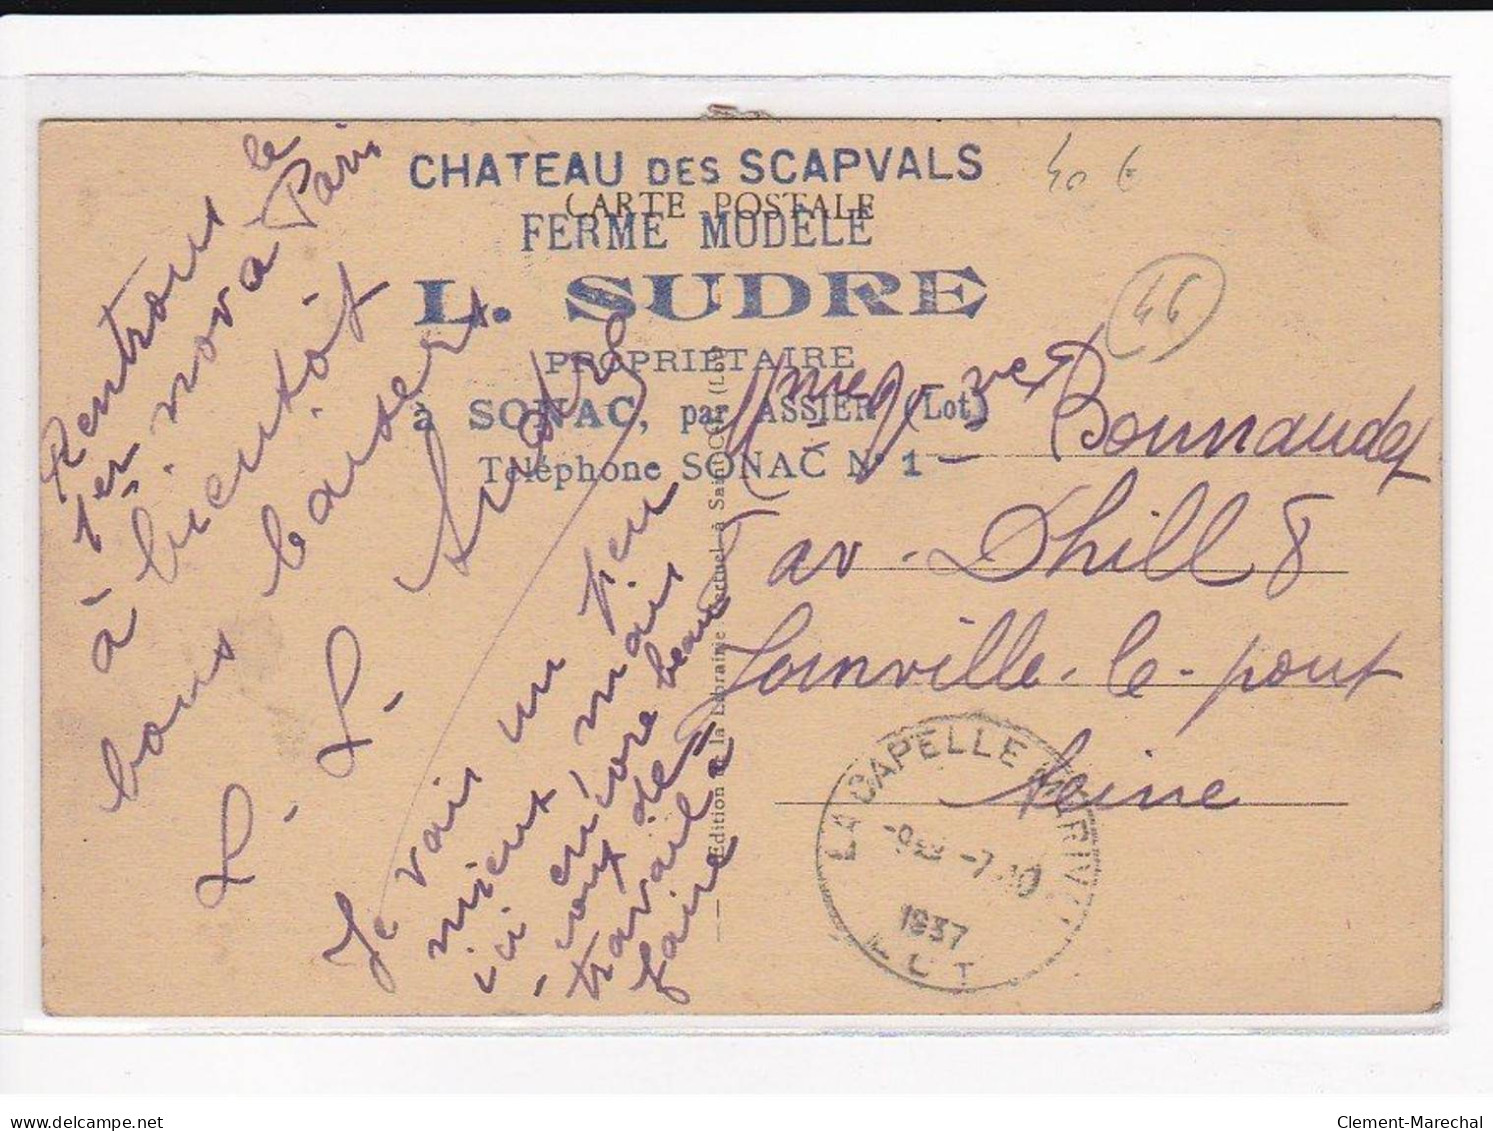 CHATEAU DES SCAPVALS
CARTE POSTALE
FERME MODÈLE
L. SUDRE
PROPRIETAIRE
à SONAC, par ASSIER (Lot)
Téléphone SONAC N° 1
40 €
46
Rentrons le
1er nov à Paris
à bientôt
bons baisers
L. L. Sudre
Je vais un peu
mieux, mais
ici encore beau
coup de
travail à
faire
Bonnaudet
av. Dhill 8
Joinville-le-pont
Seine
LA CAPELLE MARIVAL
7-10
1937
LOT
Édition de la Librairie à Saint-Céré (Lot)
delcampe.net
Clement-Marechal